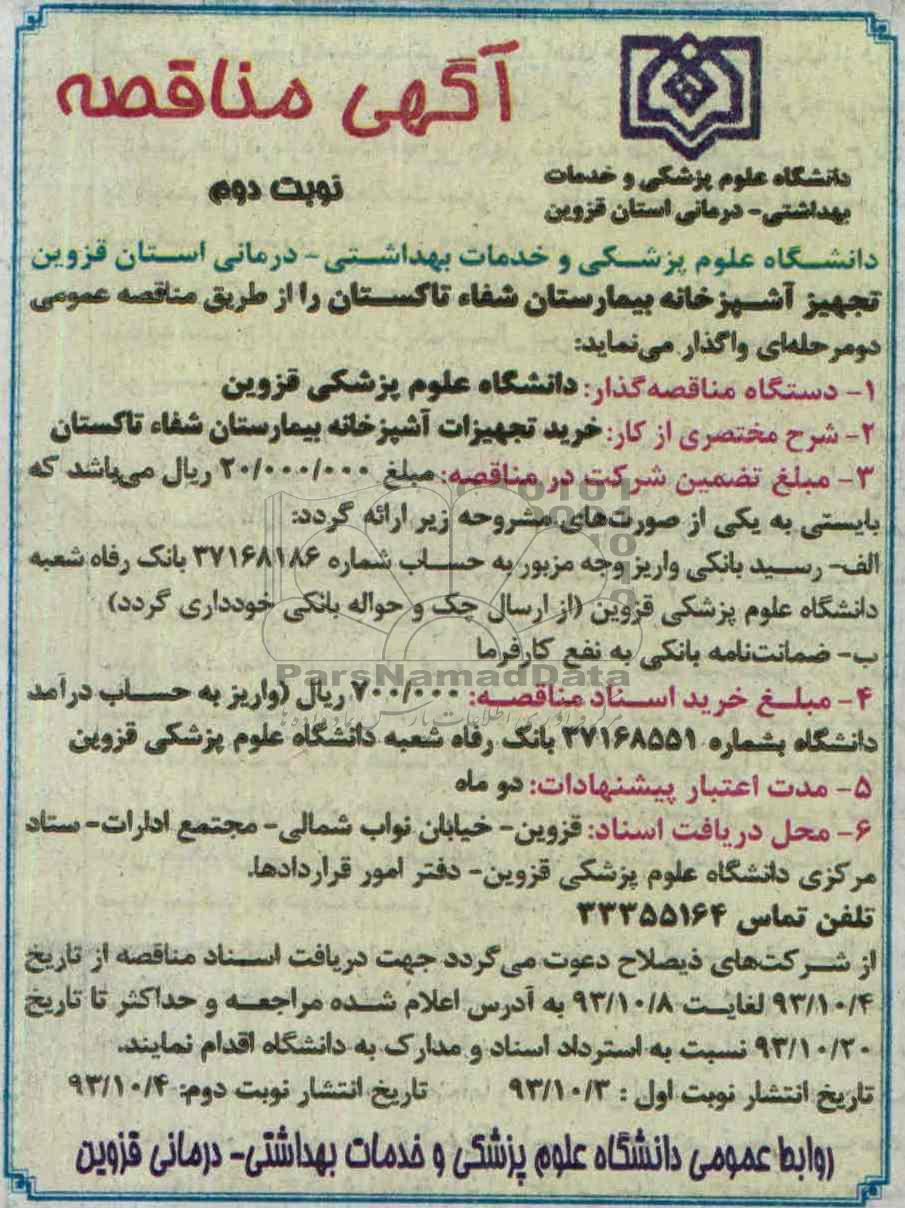 آگهی مناقصه
نوبت دوم
دانشگاه علوم پزشکی و خدمات
بهداشتی- درمانی استان قزوین
دانشگاه علوم پزشکی و خدمات بهداشتی - درمانی استان قزوین
تجهیز آشپزخانه بیمارستان شفاء تاکستان را از طریق مناقصه عمومی
دومرحله‌ای واگذار می‌نماید:
۱- دستگاه مناقصه‌گذار: دانشگاه علوم پزشکی قزوین
۲- شرح مختصری از کار: خرید تجهیزات آشپزخانه بیمارستان شفاء تاکستان
۳- مبلغ تضمین شرکت در مناقصه: مبلغ ۲۰/۰۰۰/۰۰۰ ریال می‌باشد که
بایستی به یکی از صورت‌های مشروحه زیر ارائه گردد:
الف- رسید بانکی واریز وجه مزبور به حساب شماره ۳۷۱۶۸۱۸۶ بانک رفاه شعبه
دانشگاه علوم پزشکی قزوین (از ارسال چک و حواله بانکی خودداری گردد)
ب- ضمانت‌نامه بانکی به نفع کارفرما
ParsNamadData
۴- مبلغ خرید اسناد مناقصه: ۷۰۰/۰۰۰ ریال (واریز به حساب درآمد
دانشگاه بشماره ۳۷۱۶۸۵۵۱ بانک رفاه شعبه دانشگاه علوم پزشکی قزوین
۵- مدت اعتبار پیشنهادات: دو ماه
۶- محل دریافت اسناد: قزوین- خیابان نواب شمالی- مجتمع ادارات- ستاد
مرکزی دانشگاه علوم پزشکی قزوین- دفتر امور قراردادها.
تلفن تماس ۳۳۳۵۵۱۶۴
از شرکت‌های ذیصلاح دعوت می‌گردد جهت دریافت اسناد مناقصه از تاریخ
۹۳/۱۰/۴ لغایت ۹۳/۱۰/۸ به آدرس اعلام شده مراجعه و حداکثر تا تاریخ
۹۳/۱۰/۲۰ نسبت به استرداد اسناد و مدارک به دانشگاه اقدام نمایند.
تاریخ انتشار نوبت اول : ۹۳/۱۰/۳ تاریخ انتشار نوبت دوم: ۹۳/۱۰/۴
روابط عمومی دانشگاه علوم پزشکی و خدمات بهداشتی- درمانی قزوین